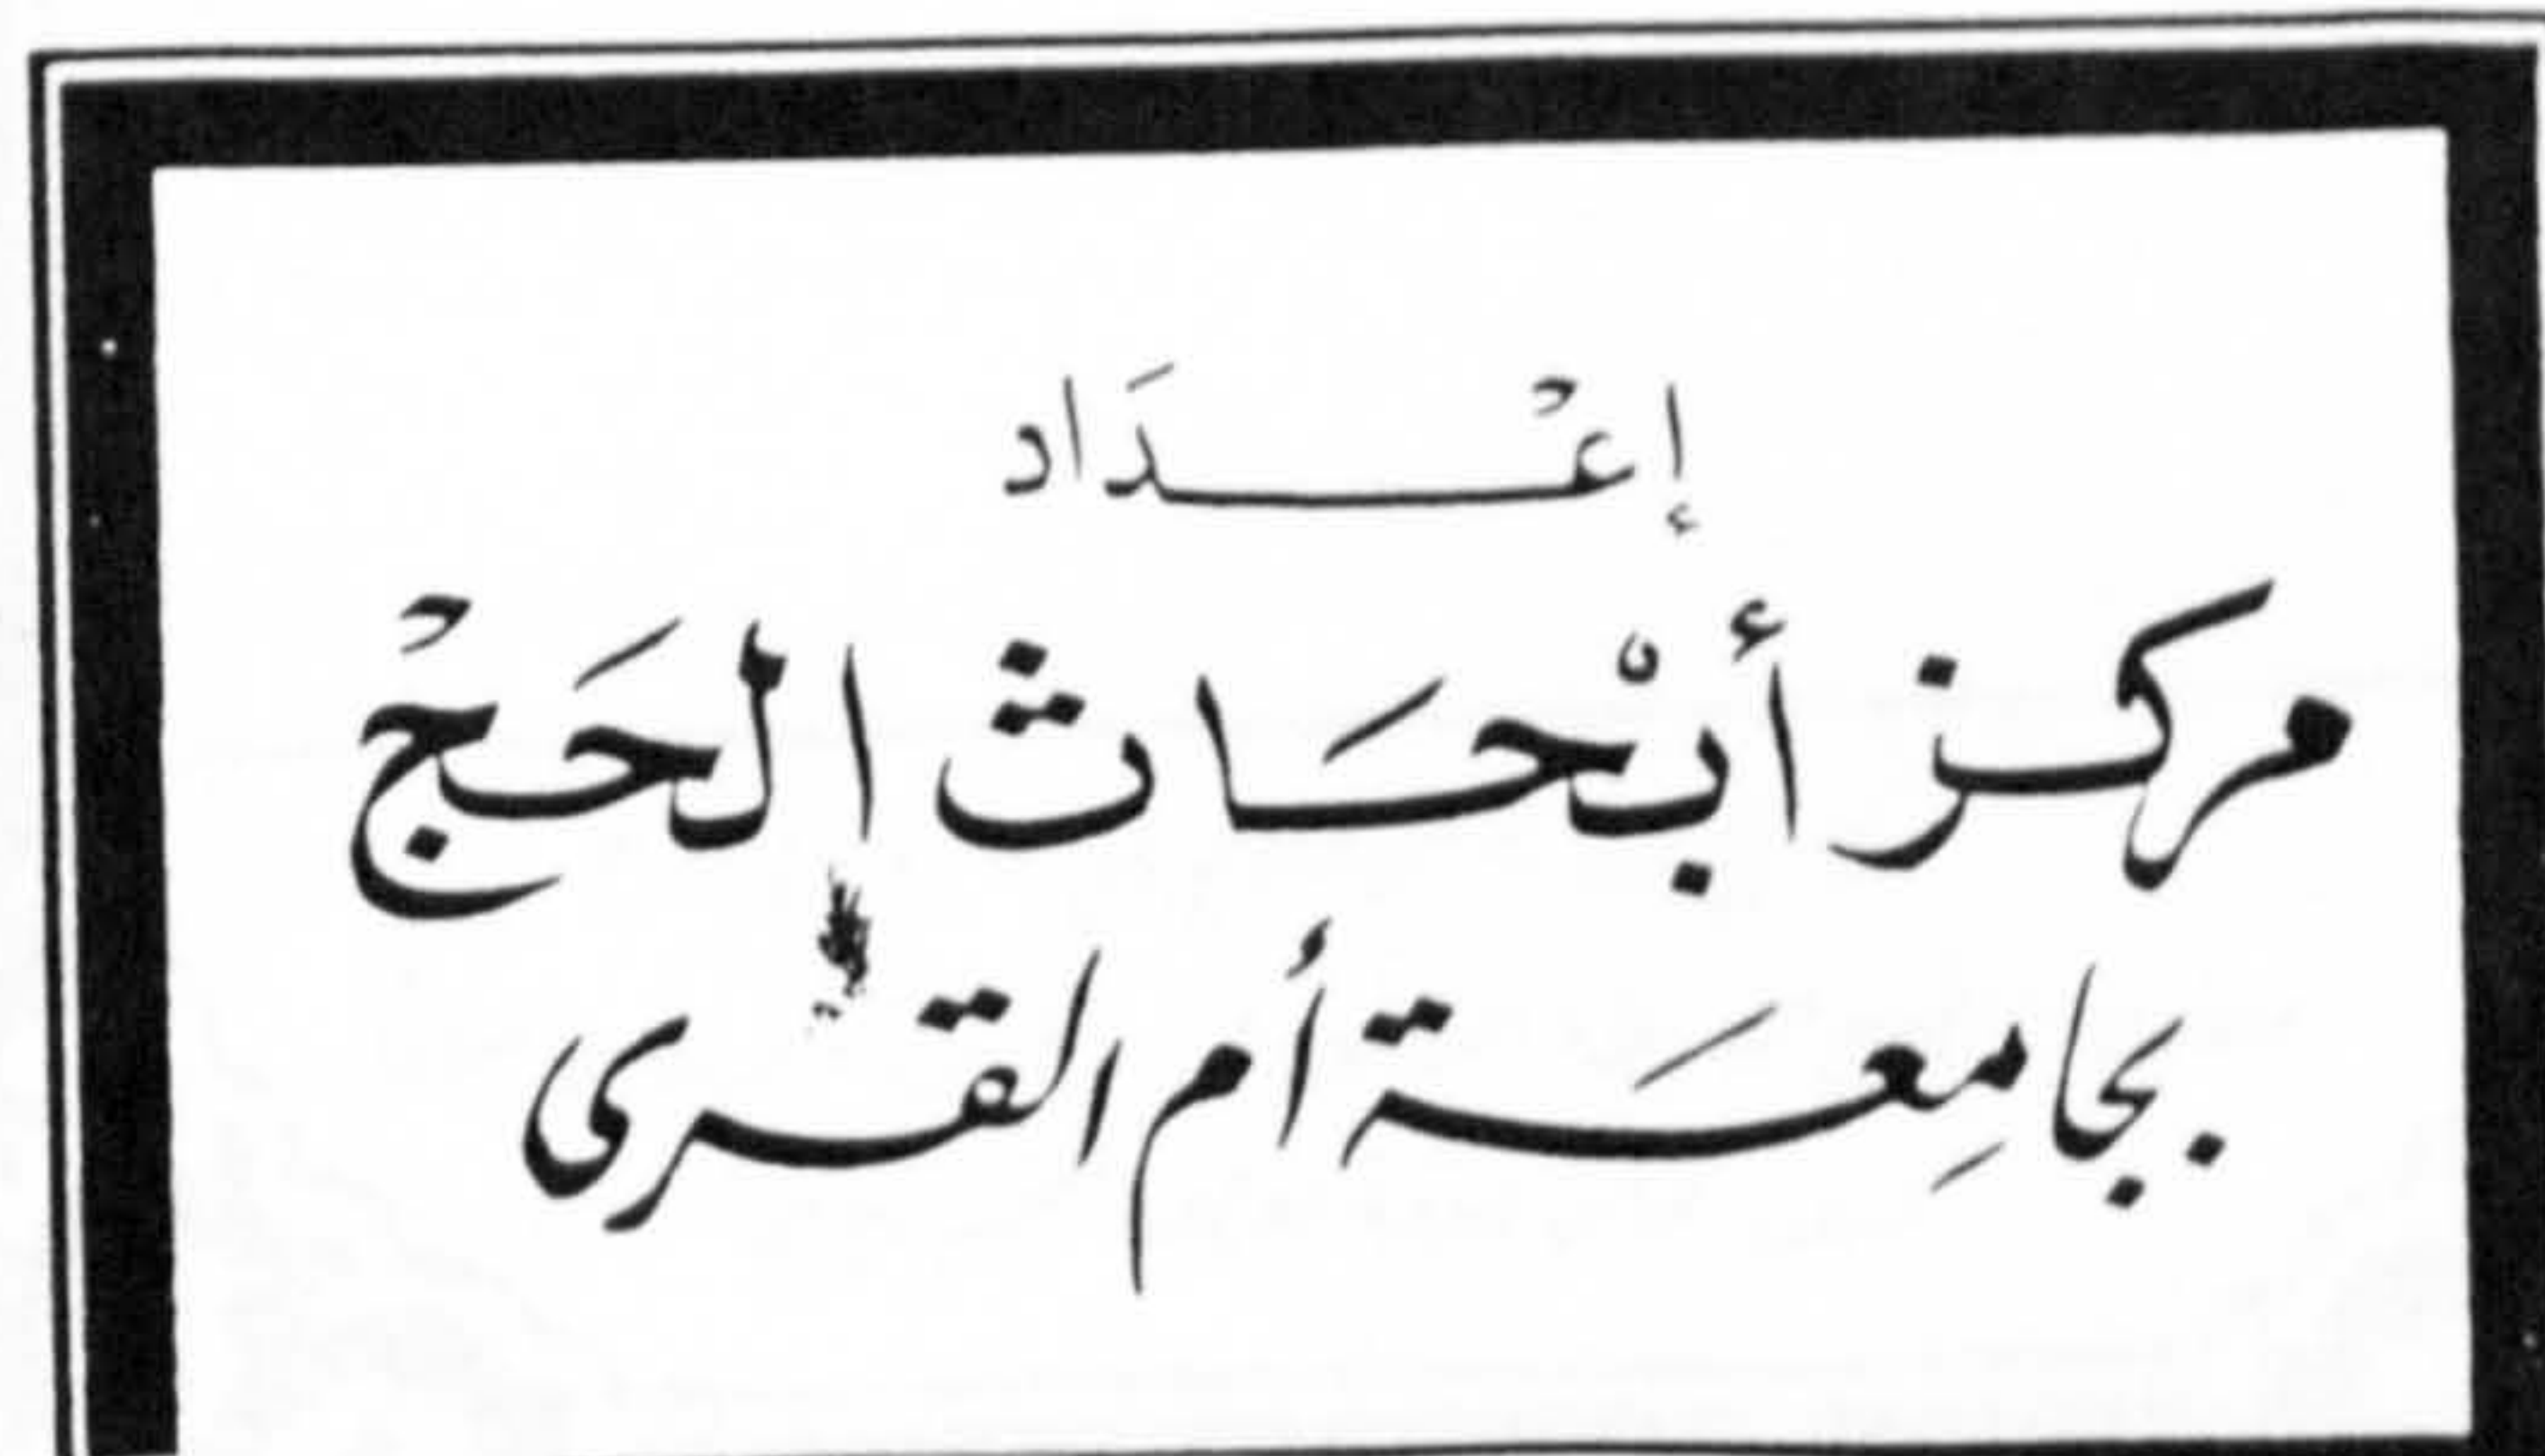 إعْـــدَاد
مركز أبْحَاث الحَجْ
بجامِعَة أم القرى